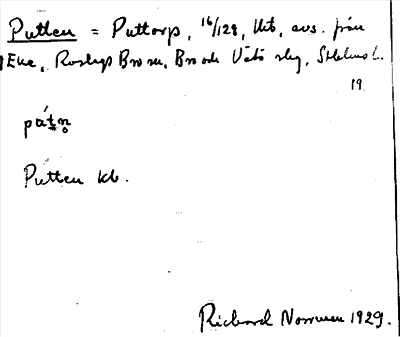 Putten = Puttorp, 16/128, lht, avs. från
Eke, Roslags Bro sn, Bro och Vätö skg, Sthlms l.
19
pútn
Putten kb.
Richard Norrman 1929.